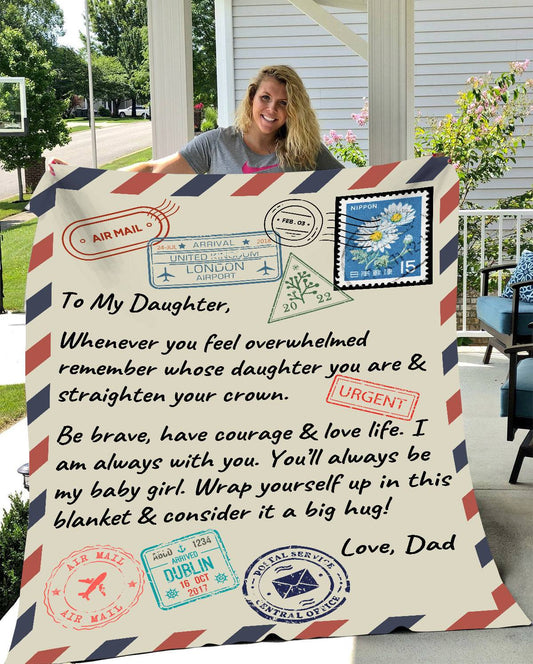 AIR MAIL
24-JUL ★ ARRIVAL ★ 2018
UNITED KINGDOM
LONDON
AIRPORT
FEB.03
NIPPON
15
日本郵便
20 22
To My Daughter,
Whenever you feel overwhelmed
remember whose daughter you are &
straighten your crown.
URGENT
Be brave, have courage & love life. I
am always with you. You'll always be
my baby girl. Wrap yourself up in this
blanket & consider it a big hug!
Love, Dad
AIR MAIL
AIR MAIL
ABCD 1234
ARRIVED
DUBLIN
16 OCT
2017
POSTAL SERVICE
CENTRAL OFFICE